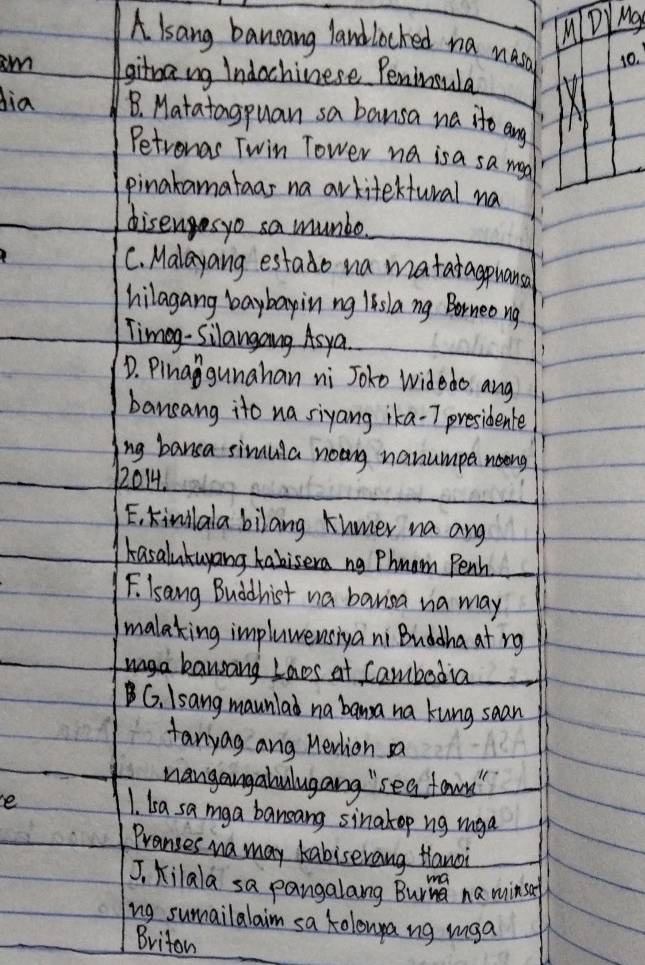 A. Isang bansang landlocked na nasa
gitna ng Indochinese Peninsula
B. Matatagpuan sa bansa na ito ang
Petronas Twin Tower na isa sa mga
pinakamataas na arkitektural na
disengosyo sa mundo.
C. Malayang estado na matatagpuan sa
hilagang baybayin ng Isla ng Borneo ng
Timog-Silangang Asya.
D. Pinangunahan ni Joko Widodo ang
bansang ito na siyang ika-7 presidente
ng bansa simula noong nanumpa noong
2014.
E. Kinilala bilang Khmer na ang
kasalukuyang kabisera ng Phnom Penh
F. Isang Buddhist na bansa na may
malaking impluwensiya ni Buddha at ng
mga bansang Laos at Cambodia
G. Isang maunlad na bansa na kung saan
tanyag ang Merlion sa
nangangahulugang "sea town"
I. Isa sa mga bansang sinakop ng mga
Pranses na may kabiserang Hanoi
J. Kilala sa pangalang Burma na minsa
ng sumailalaim sa kolonya ng mga
Briton
am
dia
a
e
M D Mga
X 10.